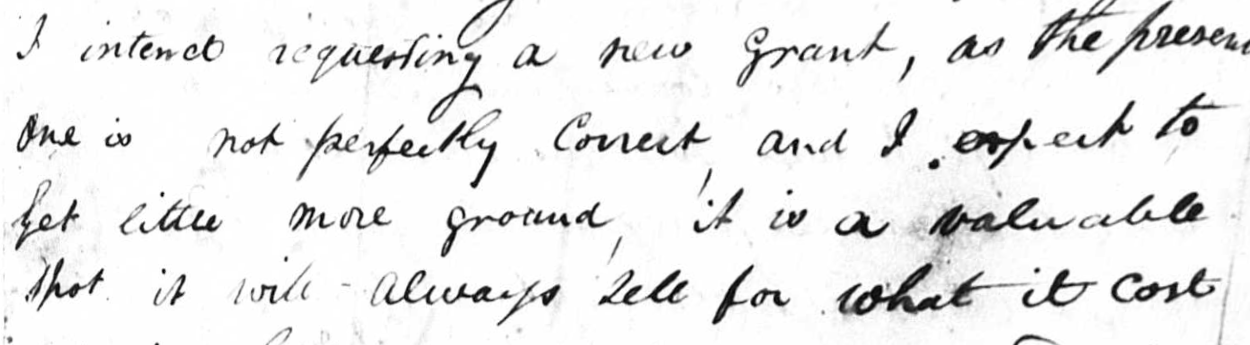 I intend requesting a new grant, as the present
One is not perfectly Correct, and I expect to
get little more ground, it is a valuable
spot it will always sell for what it cost